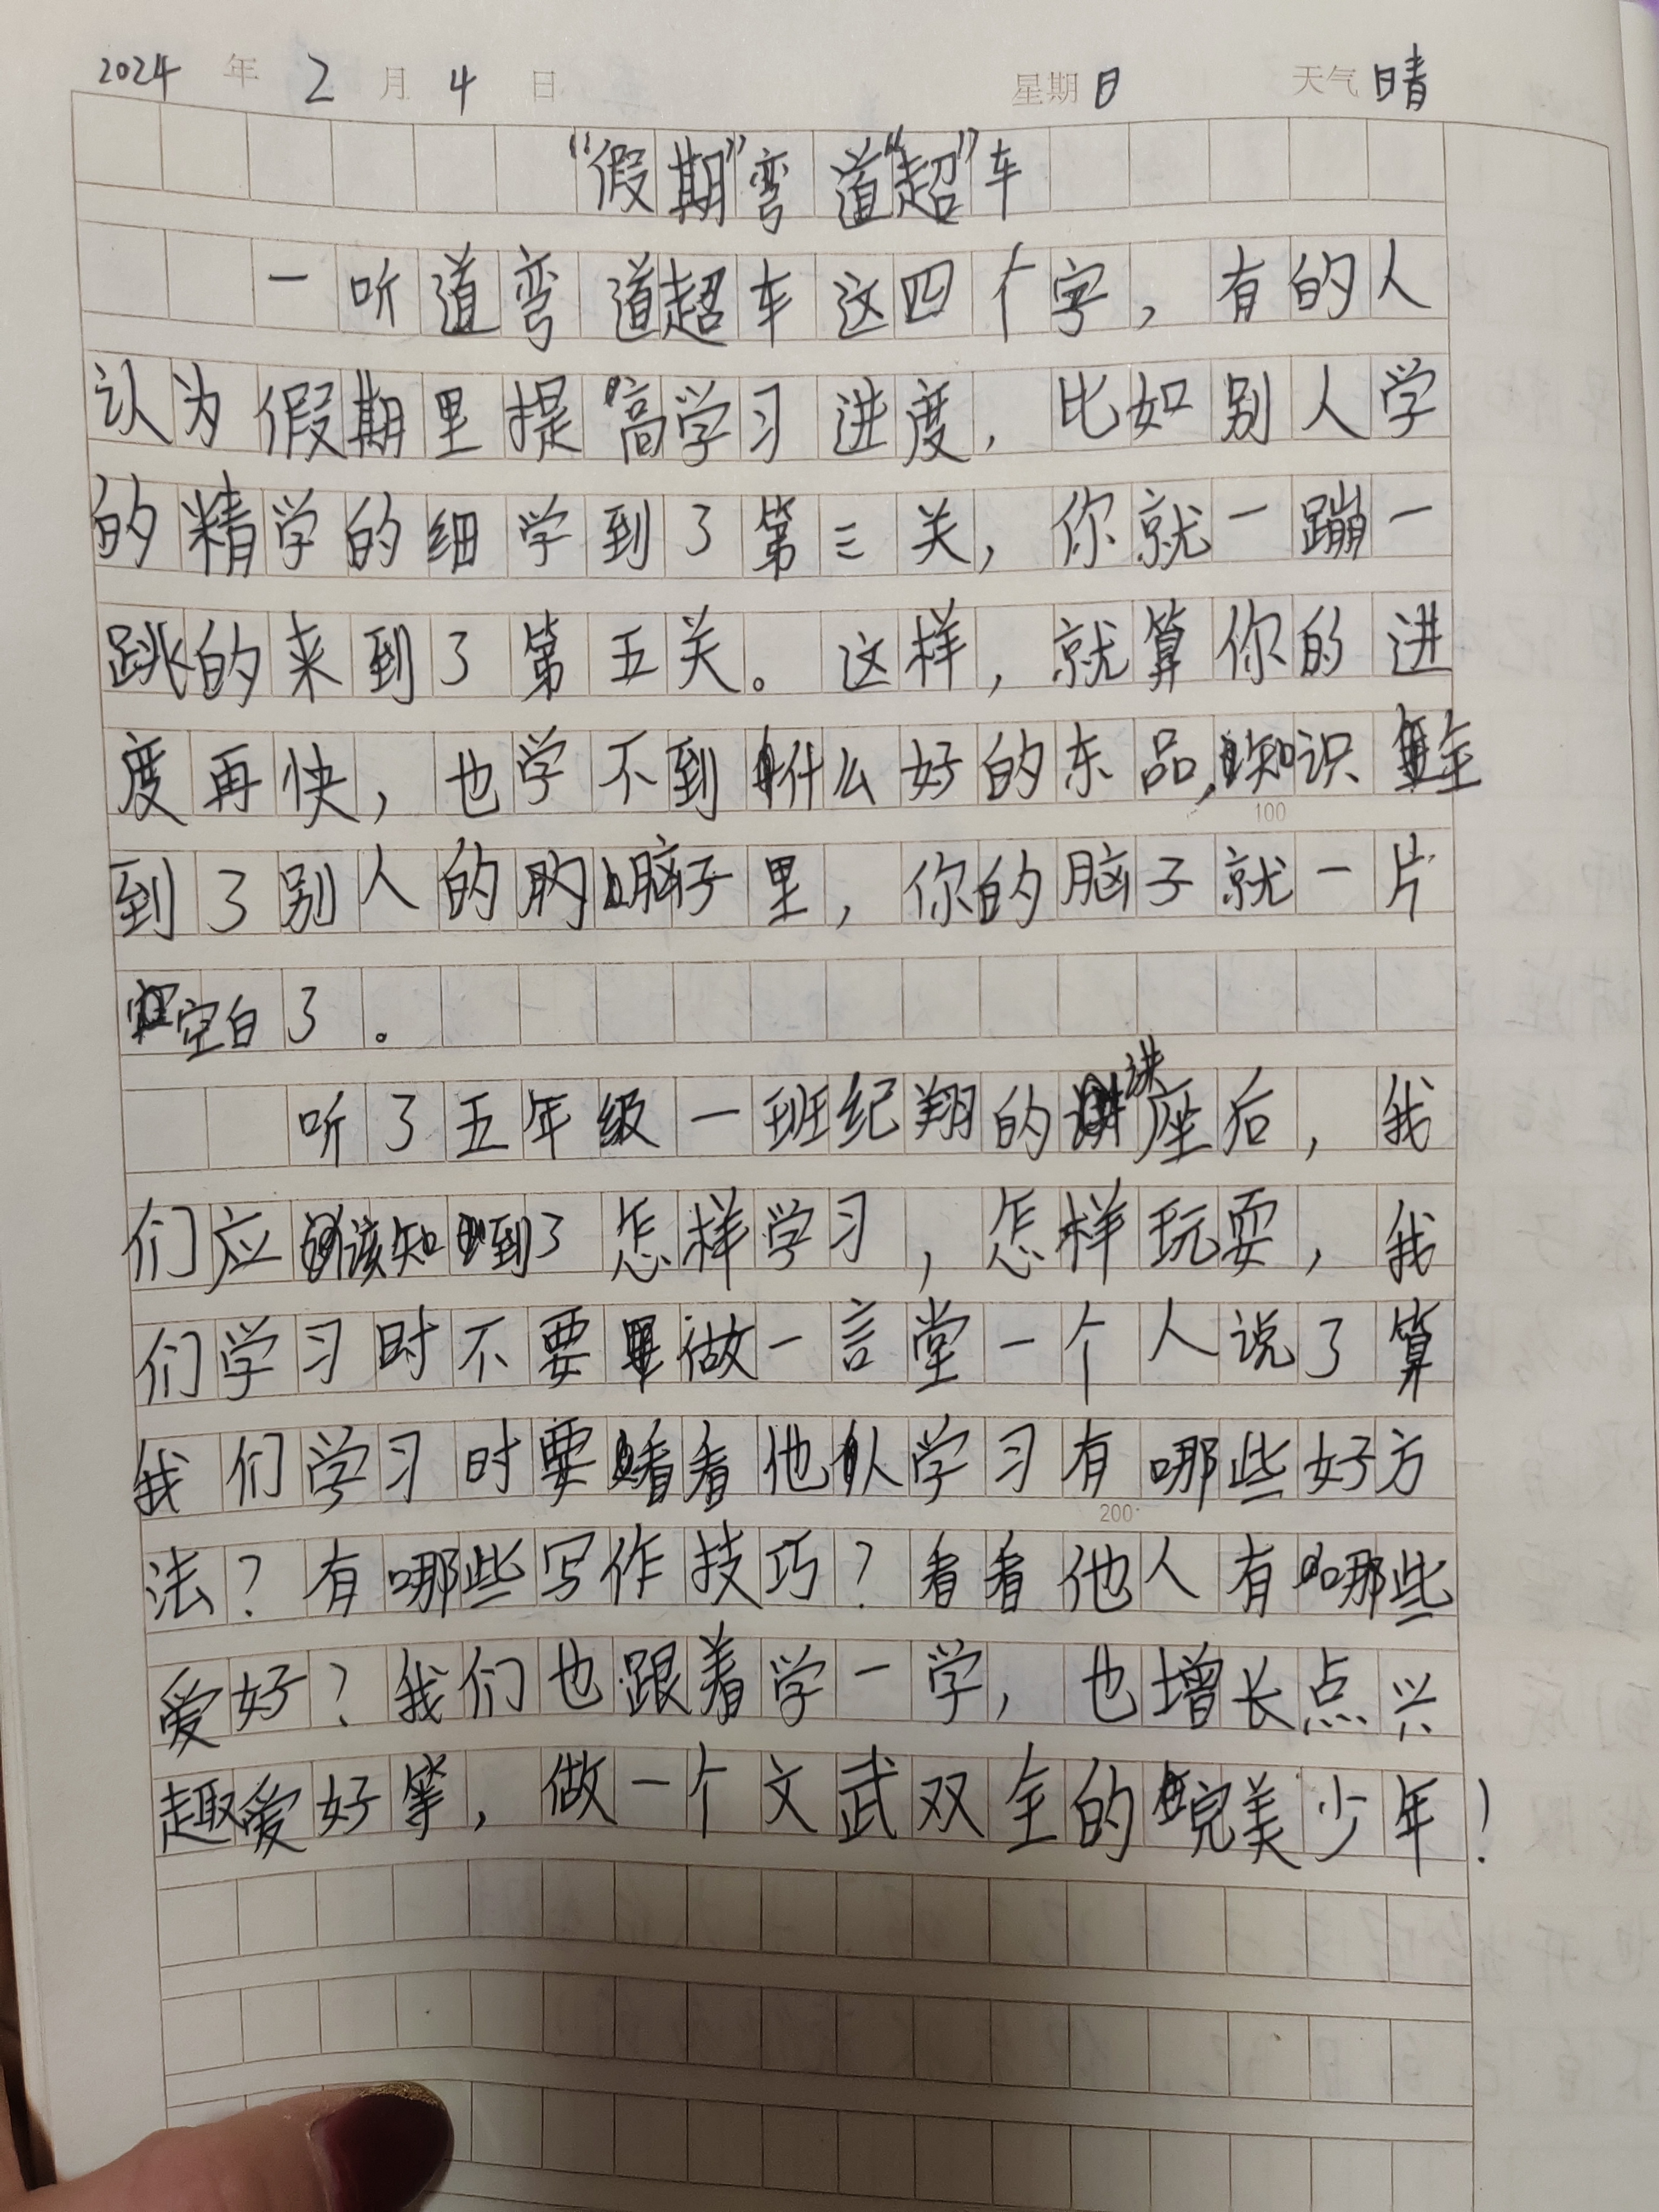 2024 年 2 月 4 日 星期日 天气晴
“假期”弯道“超”车
一听道弯道超车这四个字，有的人
认为假期里提高学习进度，比如别人学
的精学的细学到了第三关，你就一蹦一
跳的来到了第五关。这样，就算你的进
度再快，也学不到什么好的东品，知识全
到了别人的脑子里，你的脑子就一片
空白了。
100
听了五年级一班纪翔的讲座后，我
们应该知到了怎样学习，怎样玩耍，我
们学习时不要做一言堂一个人说了算
我们学习时要看看他人学习有哪些好方
200
法？有哪些写作技巧？看看他人有哪些
爱好？我们也跟着学一学，也增长点兴
趣爱好等，做一个文武双全的完美少年！